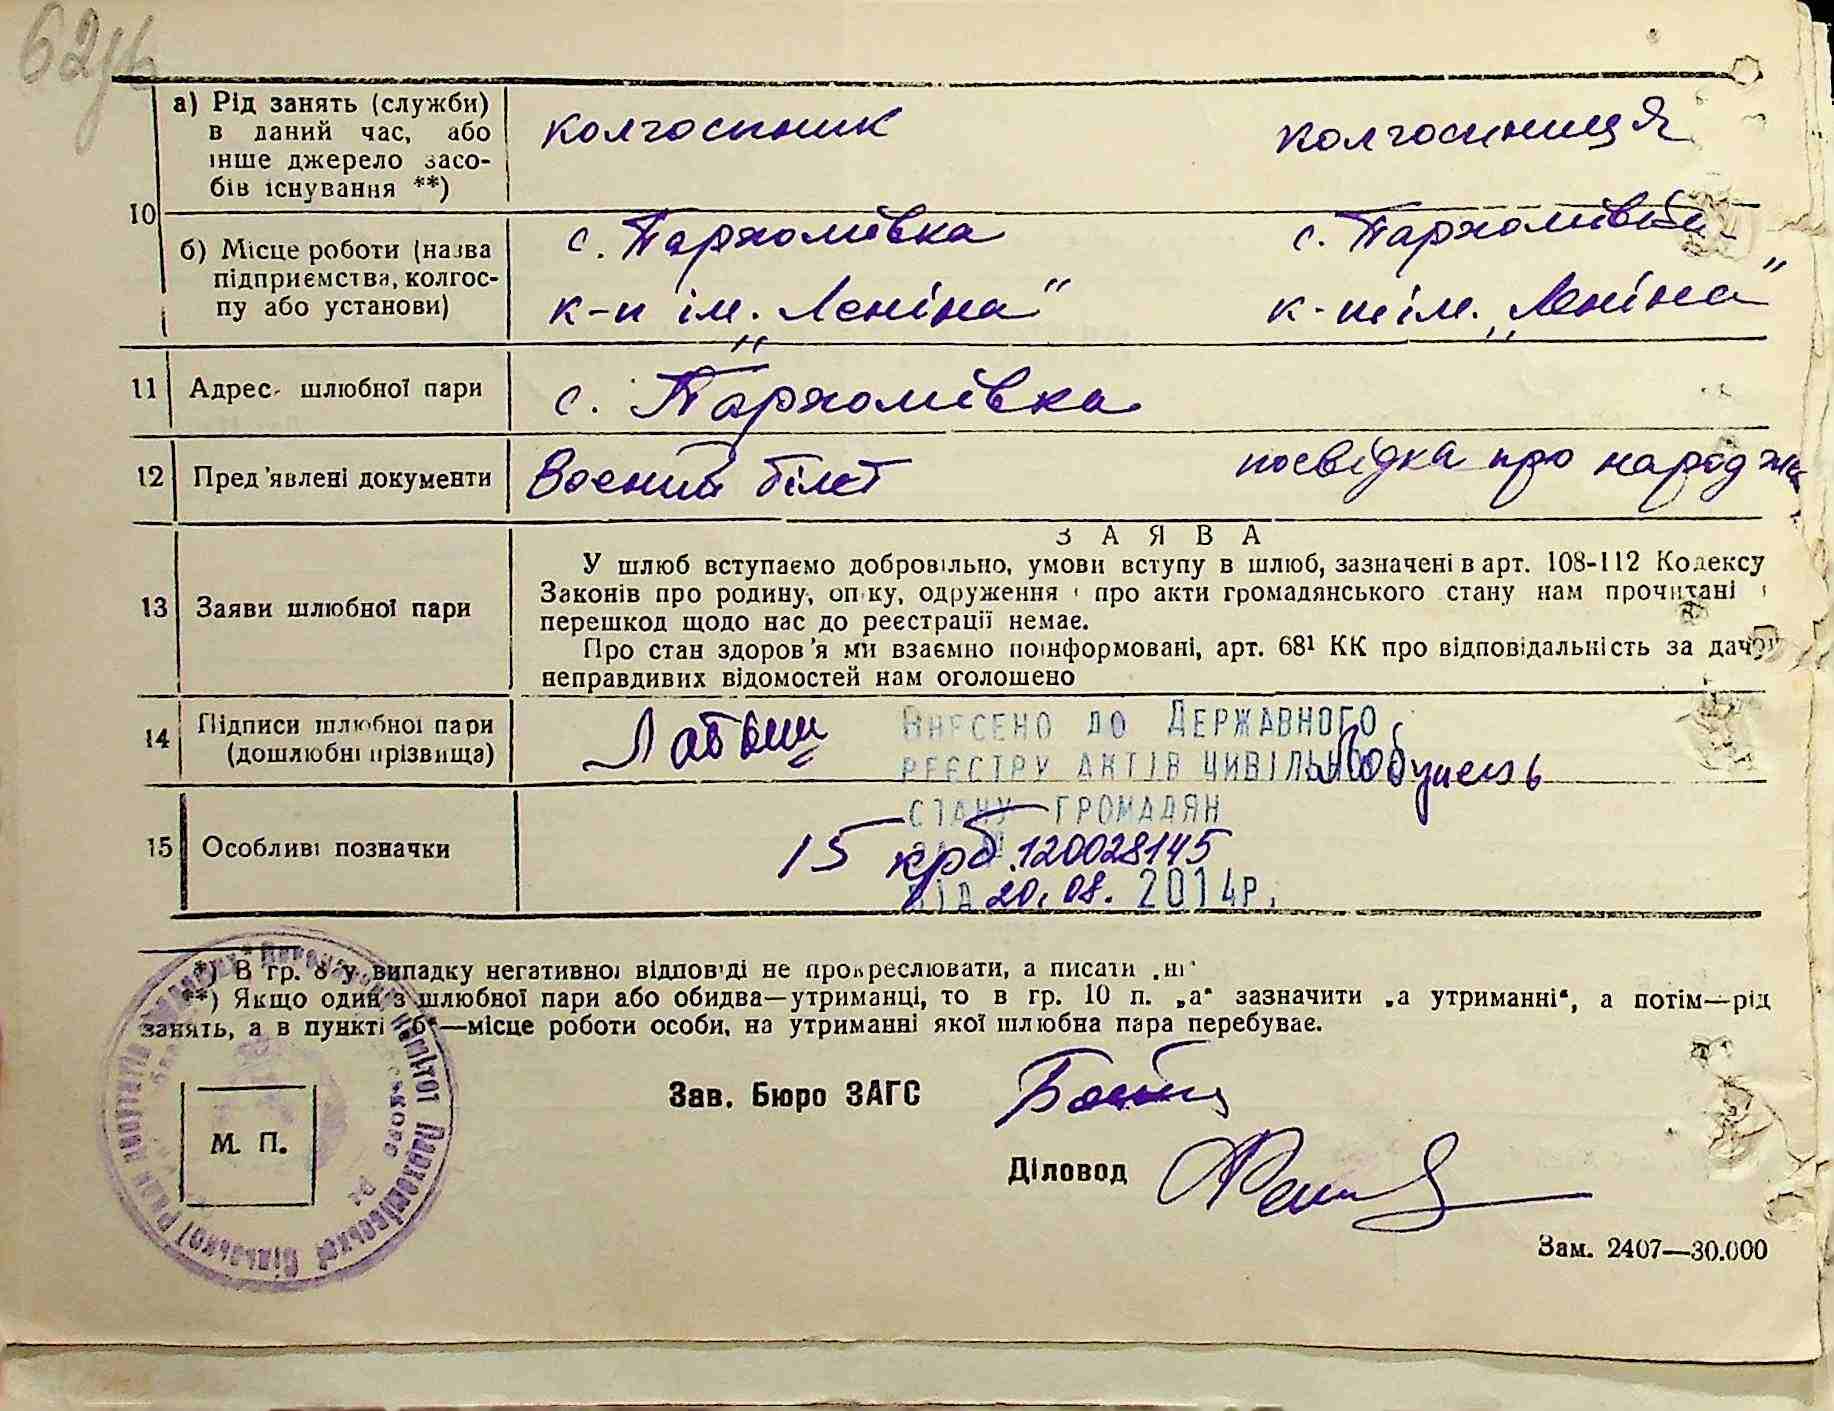 62
а) Рід занять (служби) в даний час, або інше джерело засобів існування **)
колгоспник
колгоспниця
10
б) Місце роботи (назва підприємства, колгоспу або установи)
с. Пархомівка
с. Пархомівка
к-п ім. „Леніна"
к-п ім. „Леніна"
11 Адрес- шлюбної пари
с. Пархомівка
12 Пред'явлені документи
Воєний білет
посвідка про народж
ЗАЯВА
13 Заяви шлюбної пари
У шлюб вступаємо добровільно, умови вступу в шлюб, зазначені в арт. 108-112 Кодексу
Законів про родину, опіку, одруження і про акти громадянського стану нам прочитані і
перешкод щодо нас до реєстрації немає.
Про стан здоров'я ми взаємно поінформовані, арт. 68¹ КК про відповідальність за дачу
неправдивих відомостей нам оголошено
14 Підписи шлюбної пари (дошлюбні прізвища)
Внесено до Державного
реєстру актів цивільного
стану громадян
15 Особливі позначки
15 крб.
120028145
від 20.08. 2014р.
*) В гр. 8 у випадку негативної відповіді не прокреслювати, а писати „ні"
**) Якщо один з шлюбної пари або обидва—утриманці, то в гр. 10 п. „а" зазначити „а утриманні", а потім—рід
занять, а в пункті „б"—місце роботи особи, на утриманні якої шлюбна пара перебуває.
Зав. Бюро ЗАГС
М. П.
Діловод
Зам. 2407—30.000